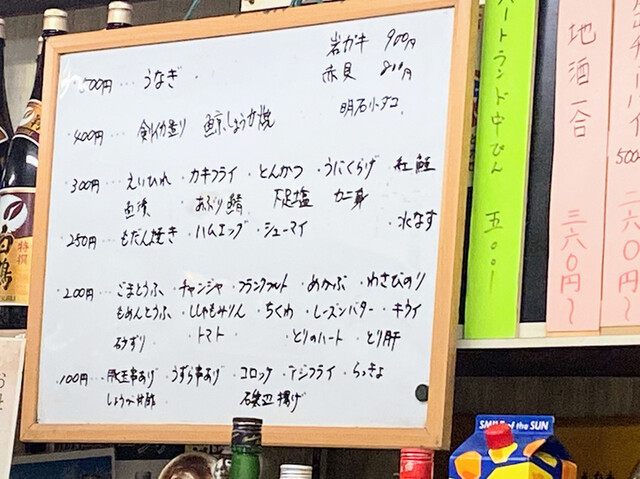 岩ガキ 900円
500円 … うなぎ
赤貝 800円
明石小ダコ
400円 … 剣イカ造り 鯨しょうが焼
300円 … えいひれ ・カキフライ ・とんかつ ・うにくらげ 紅鮭
あぶり鯖 下足塩 カニ身
250円 … もだん焼き ・ハムエッグ ・シューマイ 水なす
200円 … ごまとうふ ・チャンジャ ・フランクフルト ・めかぶ ・わさびのり
もめんとうふ ・ししゃもみりん ・ちくわ ・レーズンバター ・キウイ
砂ずり トマト とりのハート ・とり肝
100円 … 豚玉串あげ ・うずら串あげ ・コロッケ ・アジフライ ・らっきょ
しょうが甘酢 磯辺揚げ
ハートランド中びん 五〇〇〜
地酒一合 三六〇円〜
500
二六〇円〜
特撰
白鶴
SMILE of the SUN